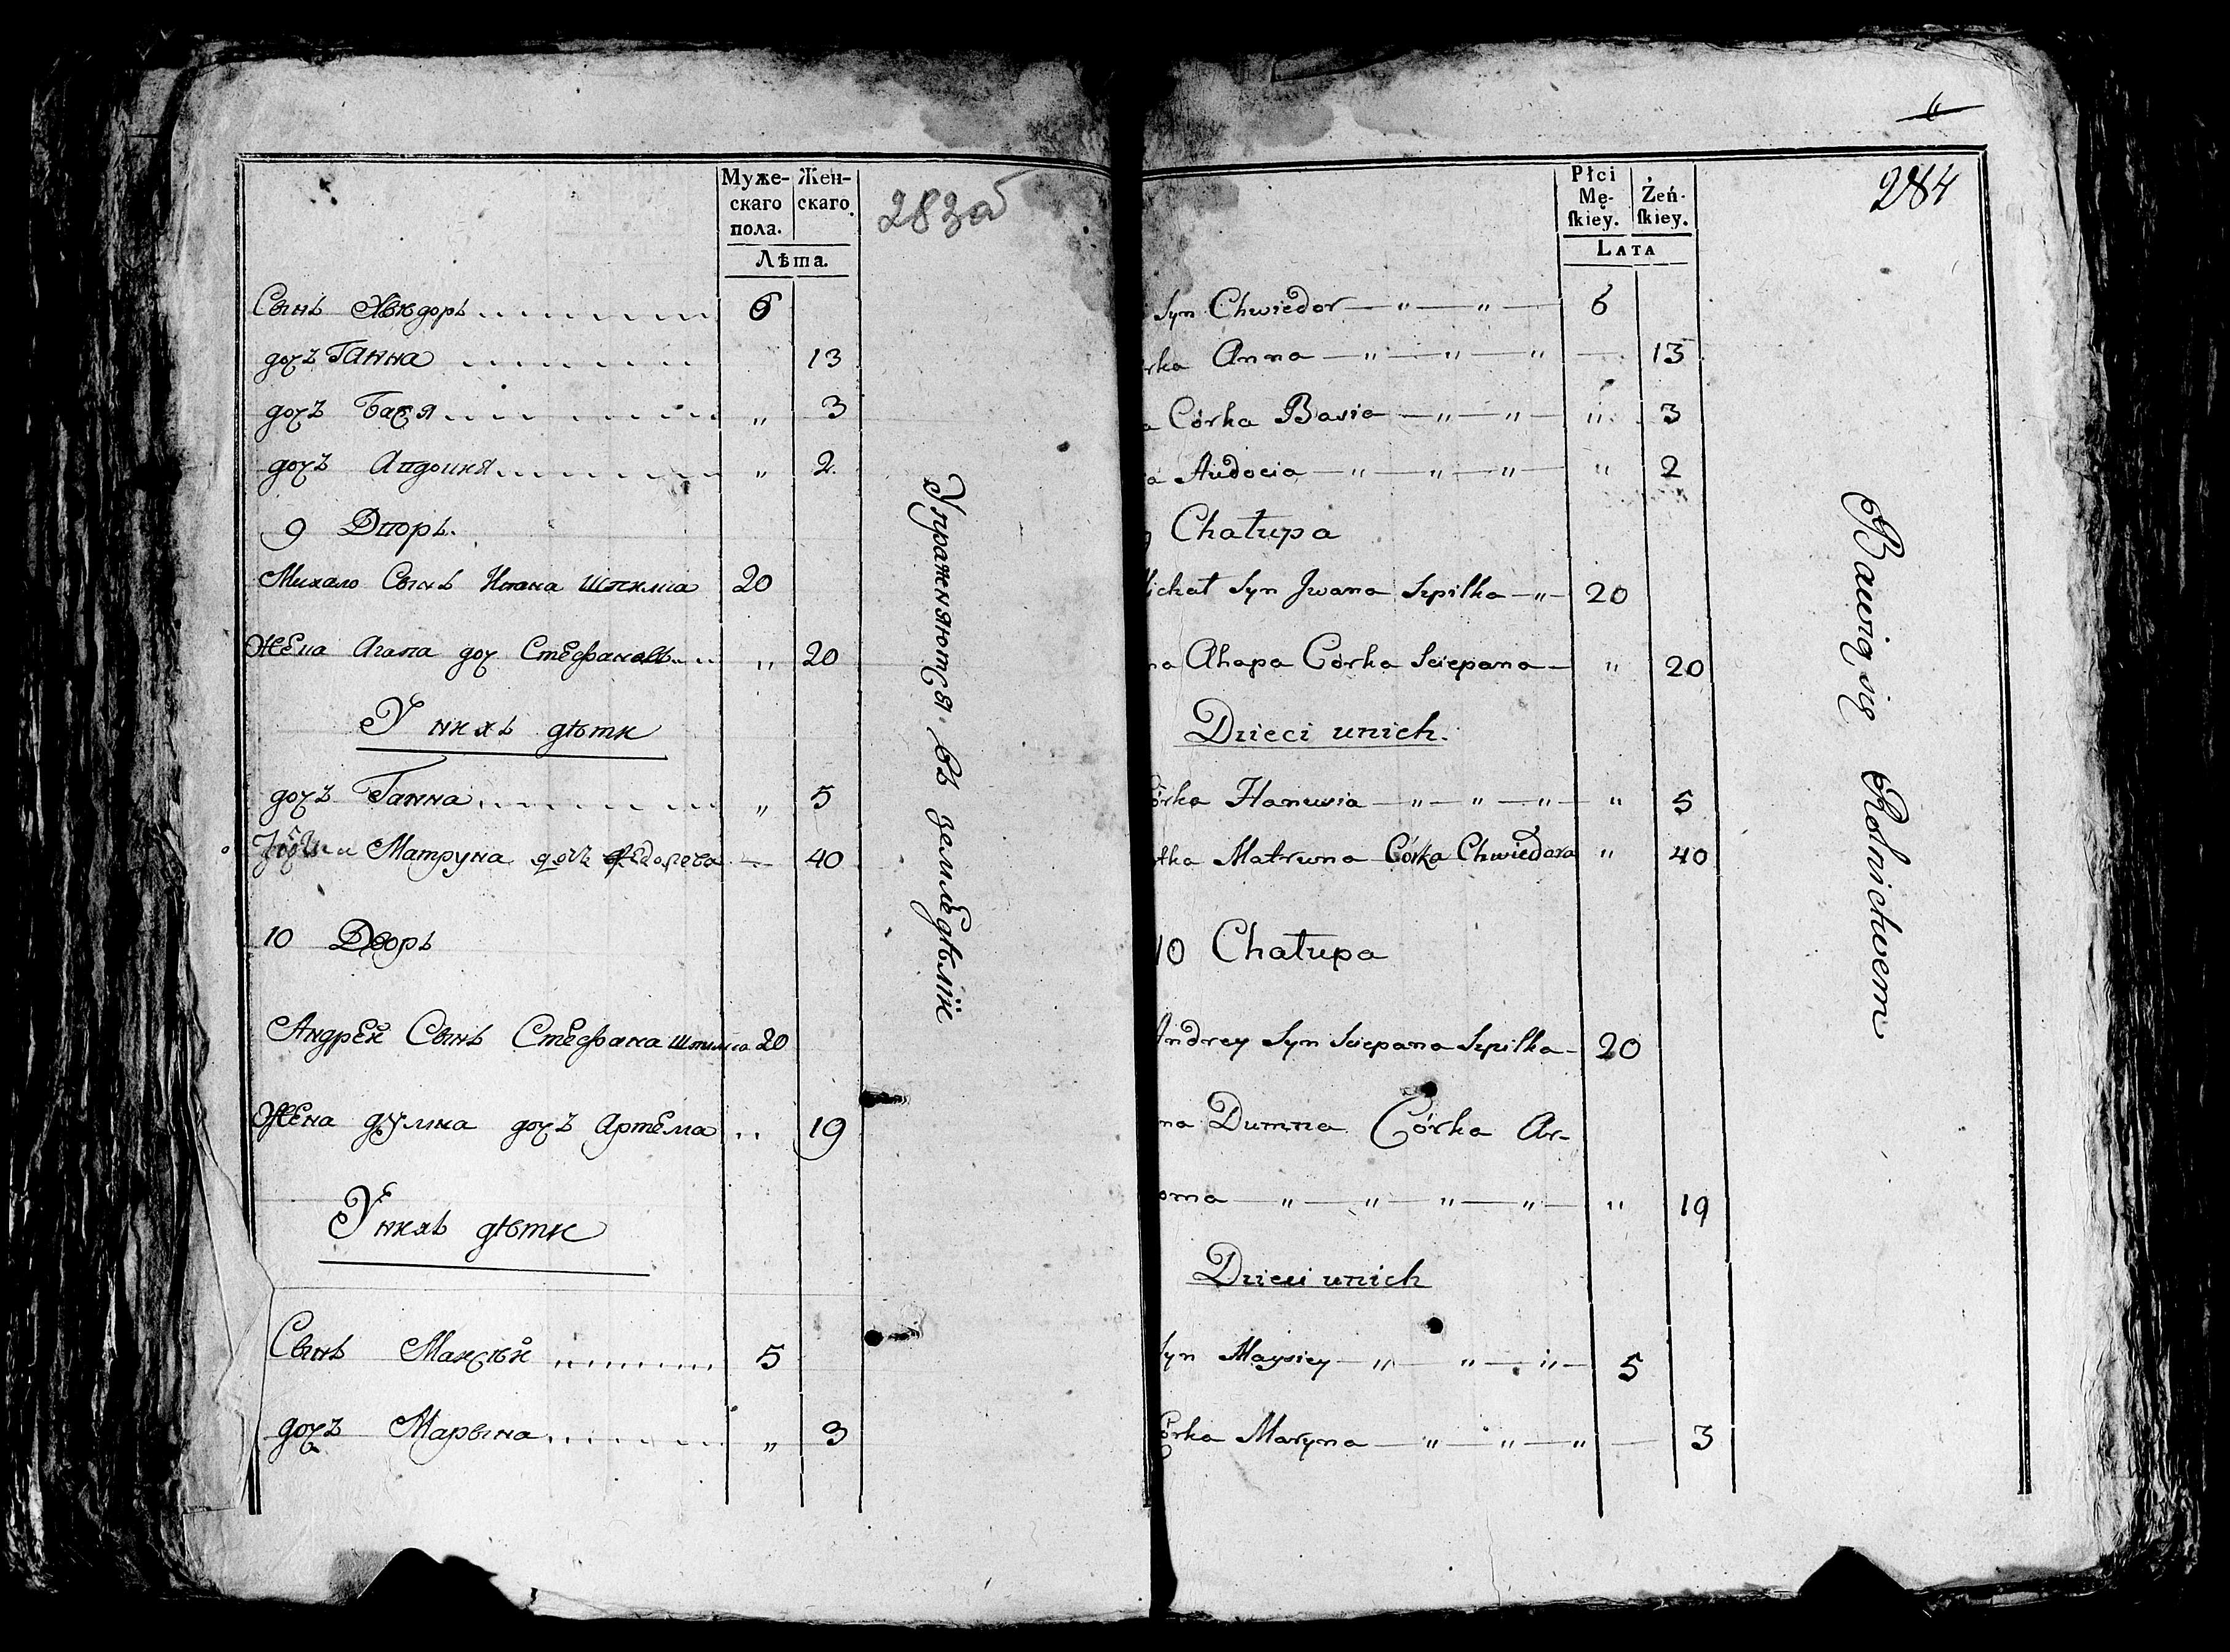 Муже-
скаго
пола.
Жен-
скаго
Лѣта.
283об
Сынъ Хведоръ 6
дочъ Ганна 13
дочъ Бася „ 3
дочъ Авдоция „ 2
9 Дворъ.
Михало Сынъ Ивана Шпилка 20
Жена Агапа доч Стефанова „ 20
У нихъ дѣти
дочъ Ганна „ 5
Матруна дочъ Федорова — 40
10 Дворъ
Андрей Сынъ Стефана Шпилка 20
Жена думна дочъ Артема „ 19
У нихъ дѣти
Сынъ Майсѣй 5
дочъ Марына „ 3
Упраженяются въ земледѣліи
6
284
Płci
Mę-
ſkiey.
Żeń-
ſkiey.
LATA
Syn Chwiedor — „ — „ — 6
rka Anna — „ — „ — „ — 13
a Córka Basia — „ — „ — „ 3
a Audocia — „ — „ — „ — „ 2
9 Chałupa
ichał Syn Jwana Szpilka — „ — 20
na Ahapa Córka Sciepana — „ 20
Dzieci unich.
órka Hanusia — „ — „ — „ — „ 5
tka Matruna Córka Chwiedora „ 40
10 Chałupa
Andrey Syn Sciepana Szpilka — 20
na Dumna Córka Ar-
oma — „ — „ — „ — „ — „ 19
Dzieci unich
Syn Maysiey — „ — „ — „ — 5
Córka Maryna — „ — „ — „ — 3
Bawią się Rolnictwem